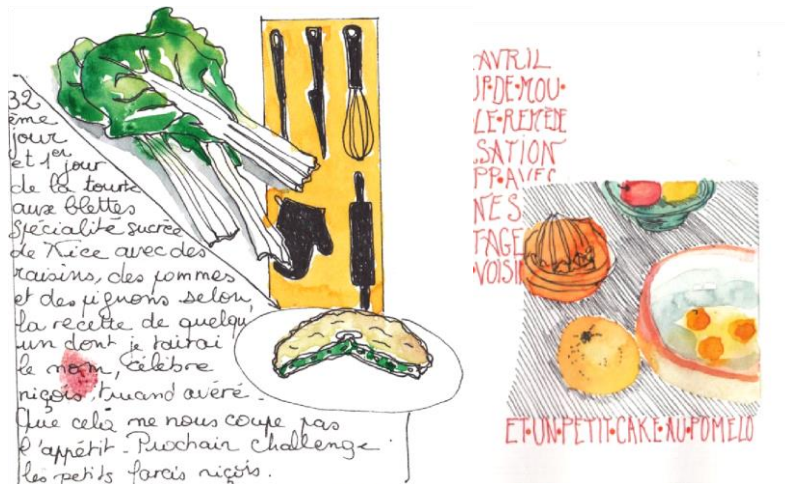 32
ème
jour
et 1er jour
de la tourte
aux blettes
spécialité sucrée
de Nice avec des
raisins, des pommes
et des pignons selon
la recette de quelqu'
un dont je tairai
le nom, célèbre
niçois, truand avéré.
Que celà ne nous coupe pas
l'appétit - Prochain challenge
les petits farcis niçois.
AVRIL
UP•DE•MOU•
LE•REMÈDE
SATION
PP•AVEC
NES
TAGE
VOISI
ET•UN•PETIT•CAKE•AU•POMELO